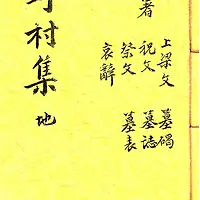 著
上梁文 墓碣
祝文 墓誌
祭文 墓表
哀辭
村集 地